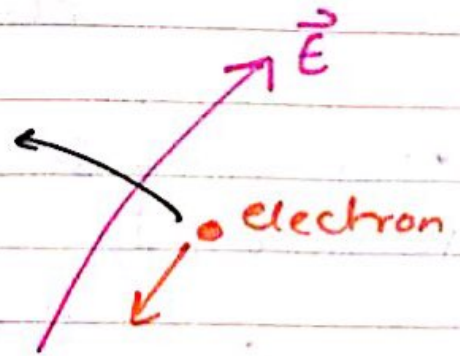 E⃗
electron